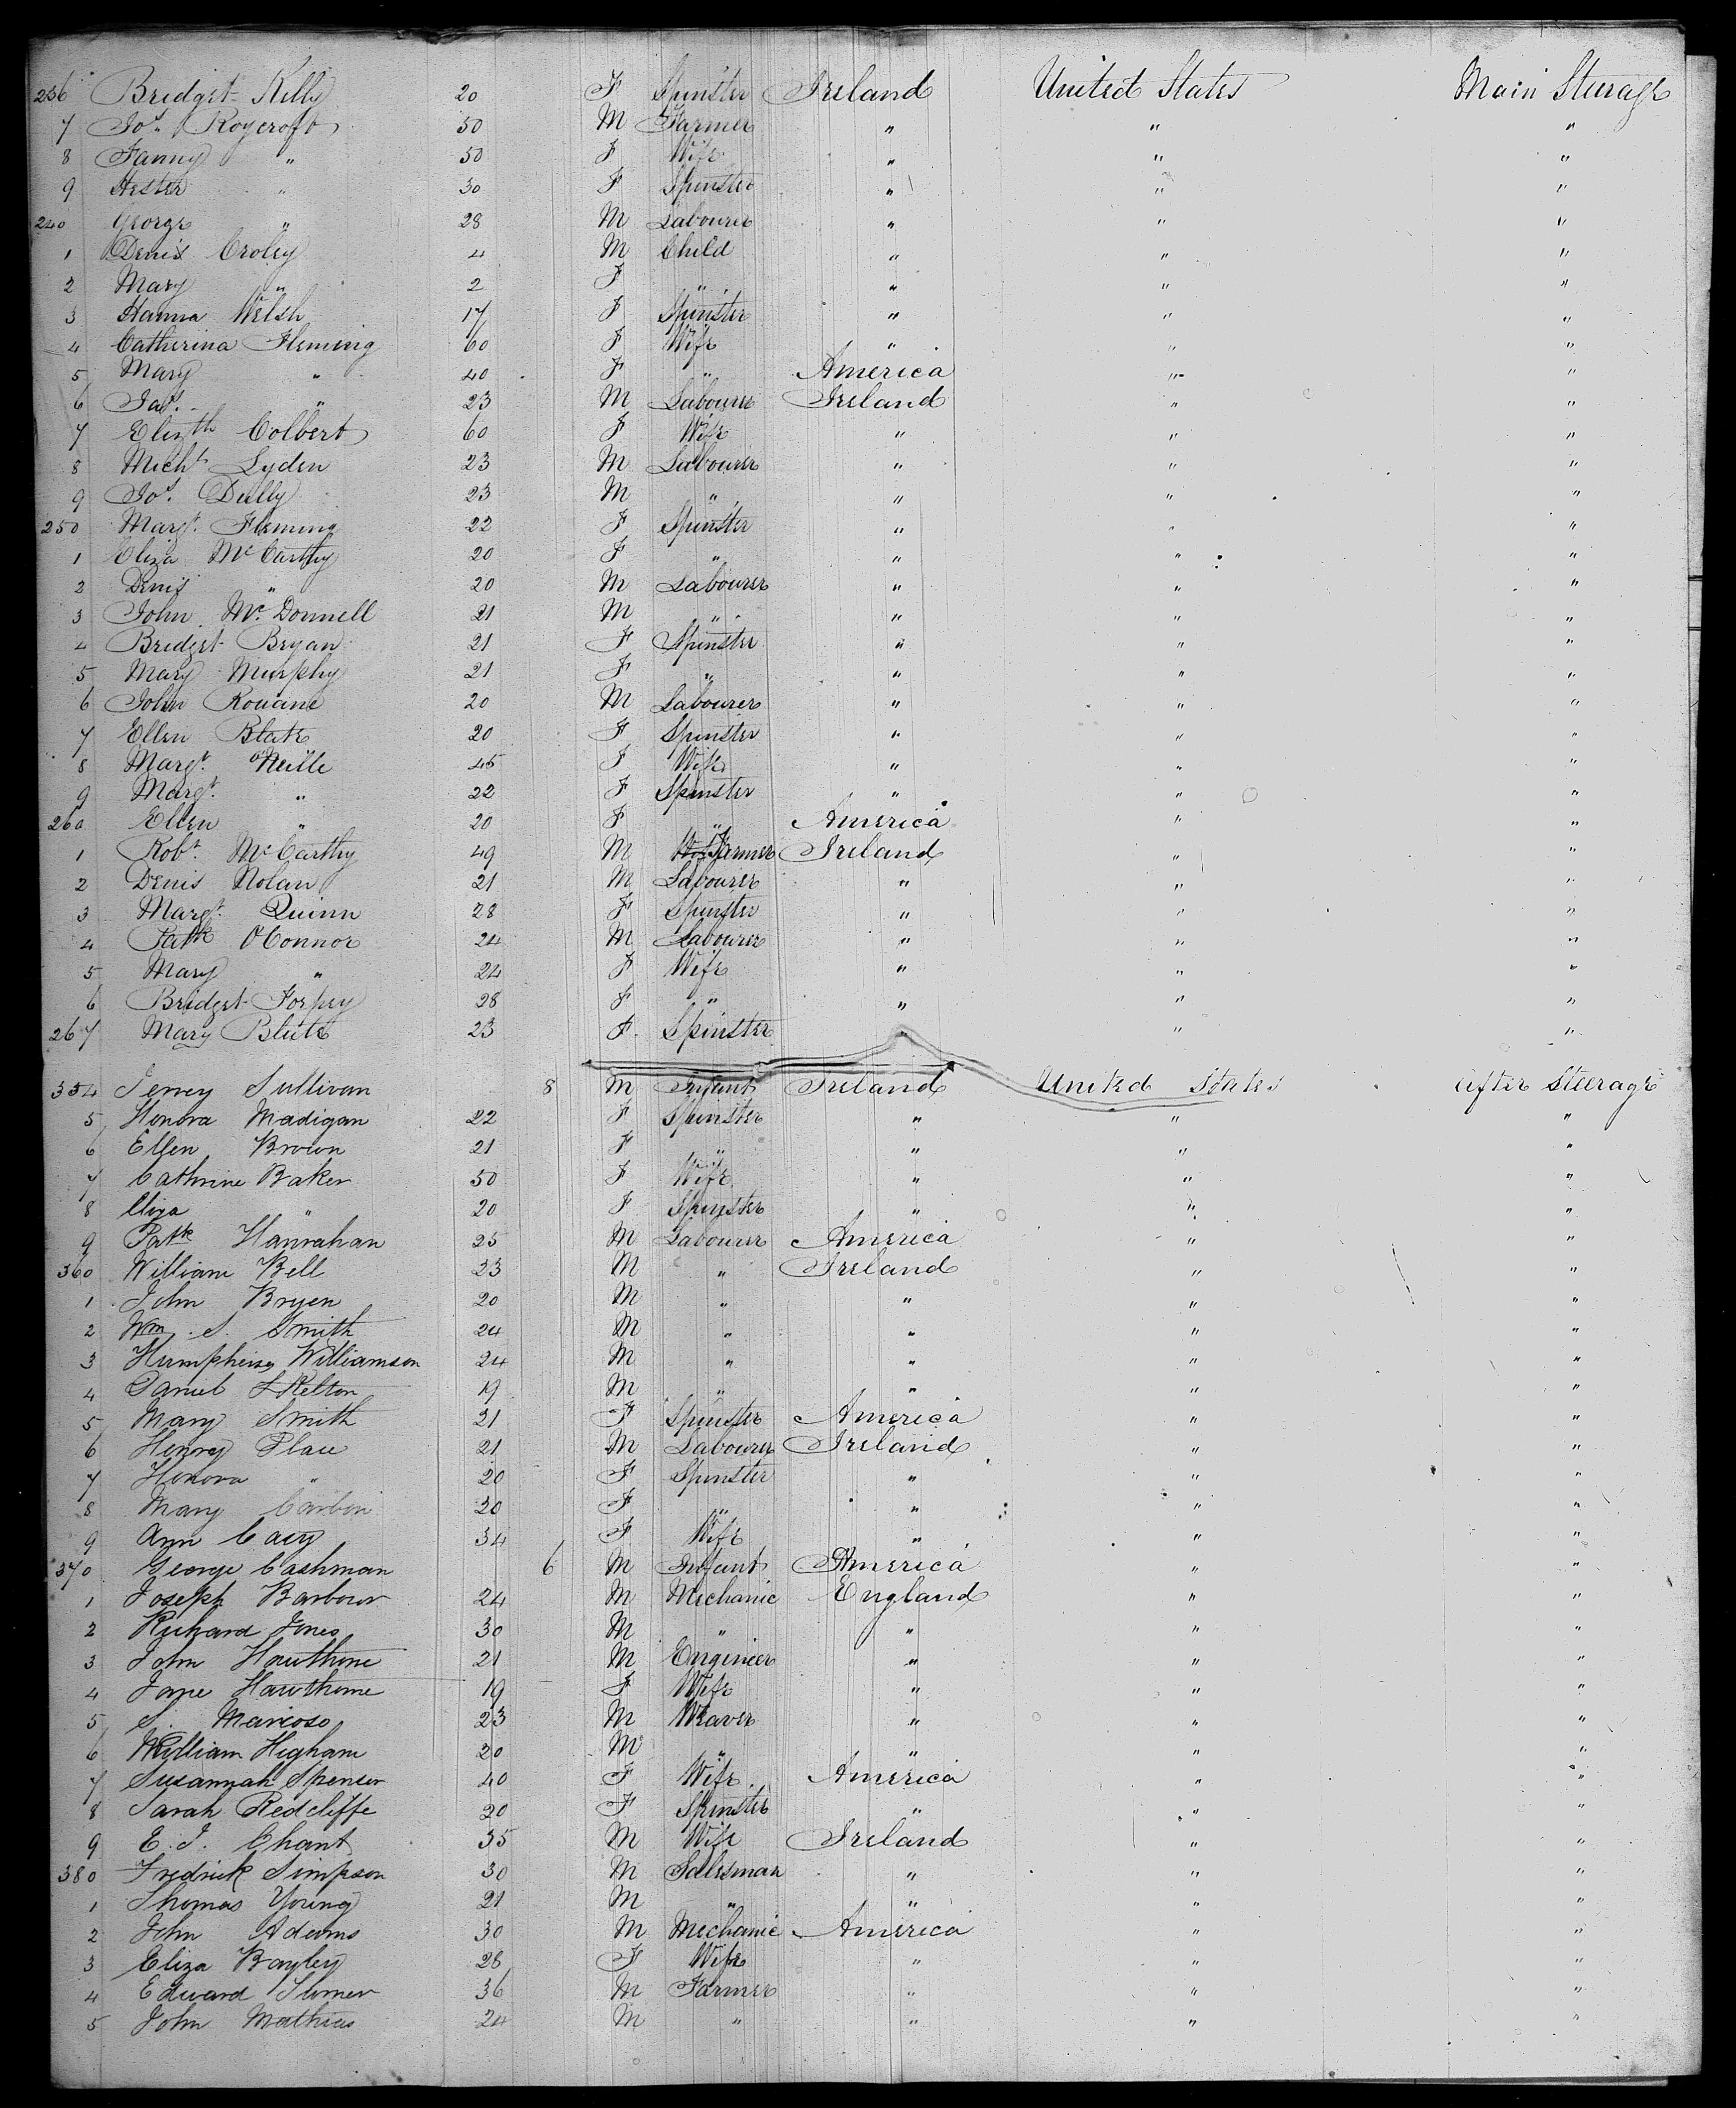 236 Bridget Kelly 20 F Spinster Ireland United States Main Steerage
7 Jos. Roycroft 50 M Farmer " " "
8 Fanny " 50 F Wife " " "
9 Hester " 30 F Spinster " " "
240 George " 28 M Labourer " " "
1 Denis Croley 4 M Child " " "
2 Mary " 2 F " " " "
3 Hanna Welsh 17 F Spinster " " "
4 Catherina Fleming 60 F Wife " " "
5 Mary " 40 F " America " "
6 Jas. " 23 M Labourer Ireland " "
7 Elizth Colbert 60 F Wife " " "
8 Michl Lyden 23 M Labourer " " "
9 Jos. Dully 23 M " " " "
250 Margt. Fleming 22 F Spinster " " "
1 Eliza McCarthy 20 F " " " "
2 Denis " 20 M Labourer " " "
3 John McDonnell 21 M " " " "
4 Bridget Bryan 21 F Spinster " " "
5 Mary Murphy 21 F " " " "
6 John Rouane 20 M Labourer " " "
7 Ellen Blake 20 F Spinster " " "
8 Margt. O'Neille 45 F Wife " " "
9 Margt. " 22 F Spinster " " "
260 Ellen " 20 F " America " "
1 Robt. McCarthy 49 M Farmer Ireland " "
2 Denis Nolan 21 M Labourer " " "
3 Margt. Quinn 28 F Spinster " " "
4 Patk O'Connor 24 M Labourer " " "
5 Mary " 24 F Wife " " "
6 Bridget Torpey 28 F " " " "
267 Mary Blute 23 F Spinster " " "
354 Jerrey Sullivan 8 M Infant Ireland United States After Steerage
5 Honora Madigan 22 F Spinster " " "
6 Ellen Brown 21 F " " " "
7 Cathrine Baker 50 F Wife " " "
8 Eliza " 20 F Spinster " " "
9 Patk Hanrahan 25 M Labourer America " "
360 William Bell 23 M " Ireland " "
1 John Bryen 20 M " " " "
2 Wm. S. Smith 24 M " " " "
3 Williamson 24 M " " " "
4 Daniel Skelton 19 M " " " "
5 Mary Smith 21 F Spinster America " "
6 Henrey Place 21 M Labourer Ireland " "
7 Honora " 20 F Spinster " " "
8 Mary 30 F " " " "
9 Ann Cary 34 F Wife " " "
370 George Cashman 6 M Infant America " "
1 Joseph Barbour 24 M Mechanic England " "
2 Richard Jones 30 M " " " "
3 John Hawthorne 21 M Engineer " " "
4 Jane Hawthorne 19 F Wife " " "
5 S. 23 M Weaver " " "
6 William Higham 20 M " " " "
7 Susannah Spenser 40 F Wife America " "
8 Sarah Redcliffe 20 F Spinster " " "
9 E. J. Chant 35 M Wife Ireland " "
380 Fredrick Simpson 30 M Salesman " " "
1 Thomas Young 21 M " " " "
2 John Adams 30 M Mechanic America " "
3 Eliza Bayley 28 F Wife " " "
4 Edward 36 M Farmer " " "
5 John Mathias 24 M " " " "